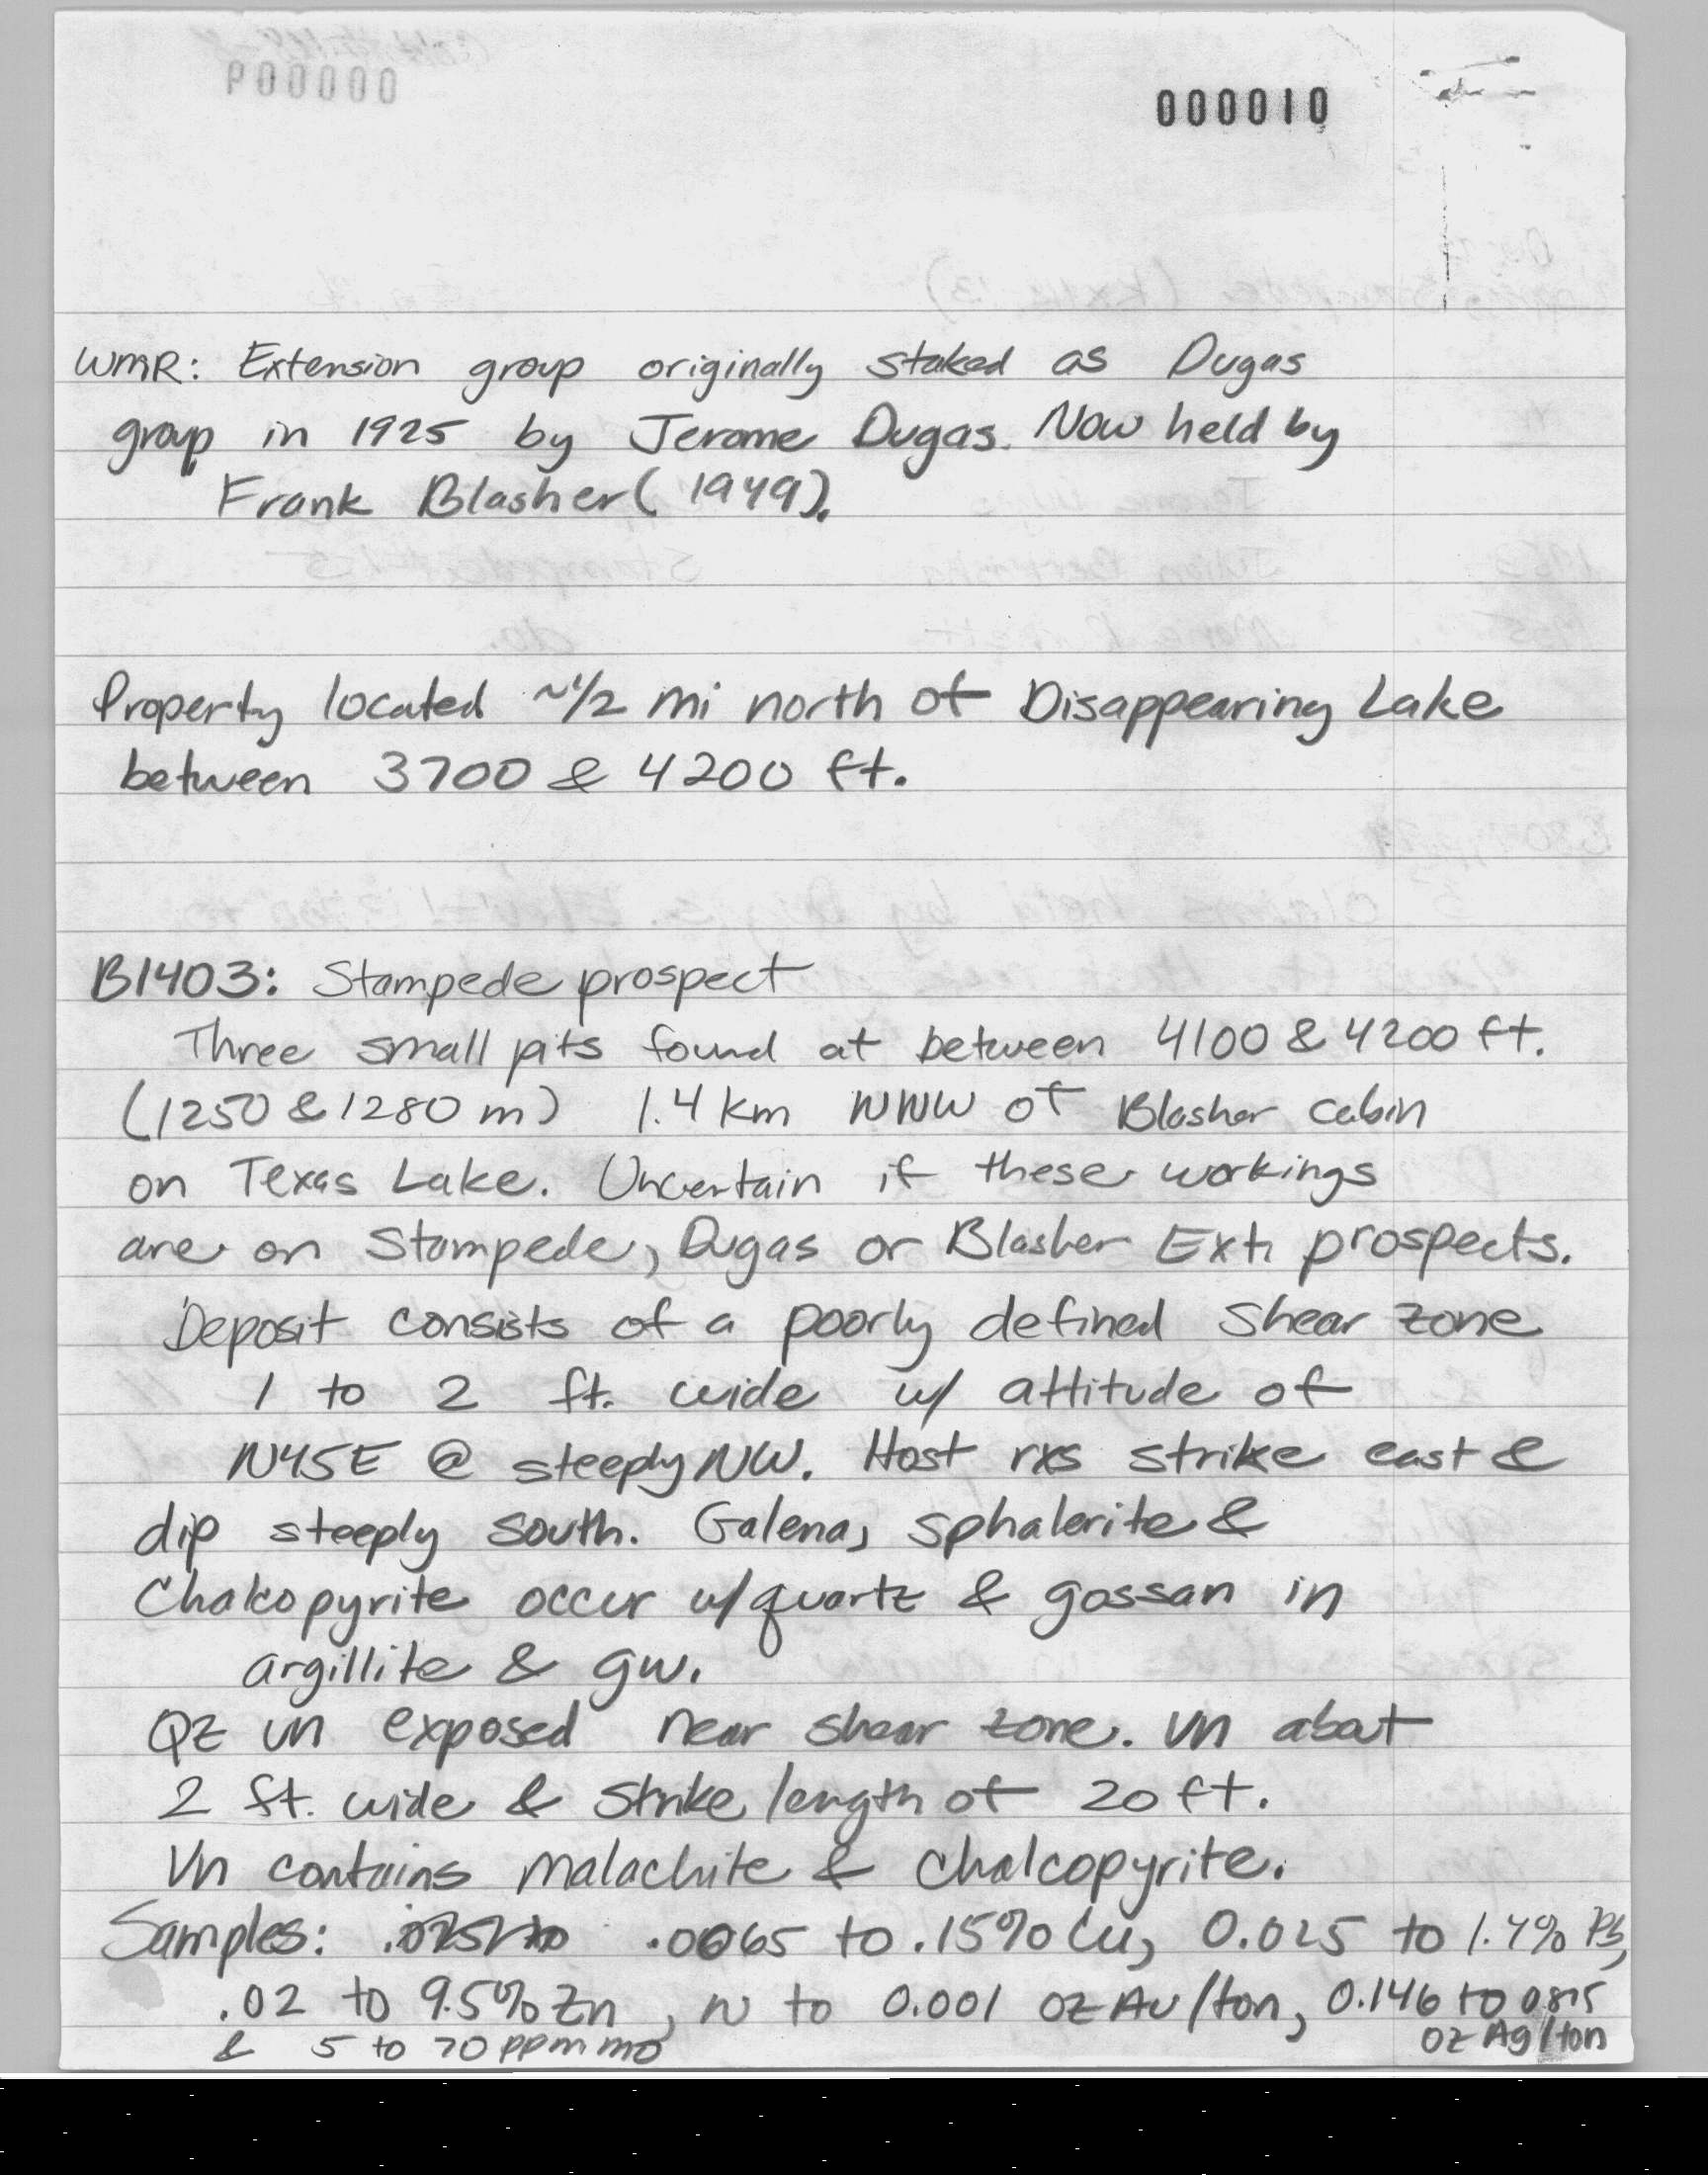 000010
WMR: Extension group originally staked as Dugas
group in 1925 by Jerome Dugas. Now held by
Frank Blasher (1949).
Property located ~1/2 mi north of Disappearing Lake
between 3700 & 4200 ft.
B1403: Stampede prospect
Three small pits found at between 4100 & 4200 ft.
(1250 & 1280 m) 1.4 km NNW of Blasher cabin
on Texas Lake. Uncertain if these workings
are on Stampede, Dugas or Blasher Ext. prospects.
Deposit consists of a poorly defined shear zone
1 to 2 ft. wide w/ attitude of
N45E @ steeply NW. Host rxs strike east &
dip steeply south. Galena, sphalerite &
Chalcopyrite occur w/ quartz & gossan in
argillite & gw.
Qz vn exposed near shear zone. Vn about
2 ft. wide & strike length of 20 ft.
Vn contains malachite & chalcopyrite.
Samples: .0065 to .15% Cu, 0.025 to 1.4% Pb,
.02 to 9.5% Zn, N to 0.001 oz Au/ton, 0.146 to 0.815
oz Ag/ton
& 5 to 70 ppm mo